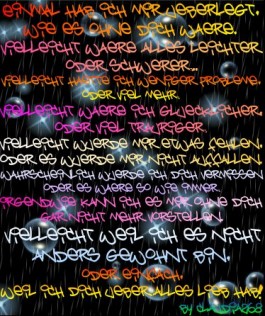 EINMAL HAB ICH MIR UEBERLEGT.
WIE ES OHNE DICH WAERE.
VIELLEICHT WAERE ALLES LEICHTER
ODER SCHWERER...
VIELLEICHT HAETTE ICH WENIGER PROBLEME.
ODER VIEL MEHR.
VIELLEICHT WAERE ICH GLUECKLICHER.
ODER VIEL TRAURIGER.
VIELLEICHT WUERDE MIR ETWAS FEHLEN.
ODER ES WUERDE MIR NICHT AUFFALLEN
WAHRSCHEINLICH WUERDE ICH DICH VERMISSEN
ODER ES WAERE SO WIE IMMER.
IRGENDWIE KANN ICH ES MIR OHNE DICH
GAR NICHT MEHR VORSTELLEN.
VIELLEICHT WEIL ICH ES NICHT
ANDERS GEWOHNT BIN.
ODER EINFACH.
WEIL ICH DICH UEBER ALLES LIEB HAB!
BY